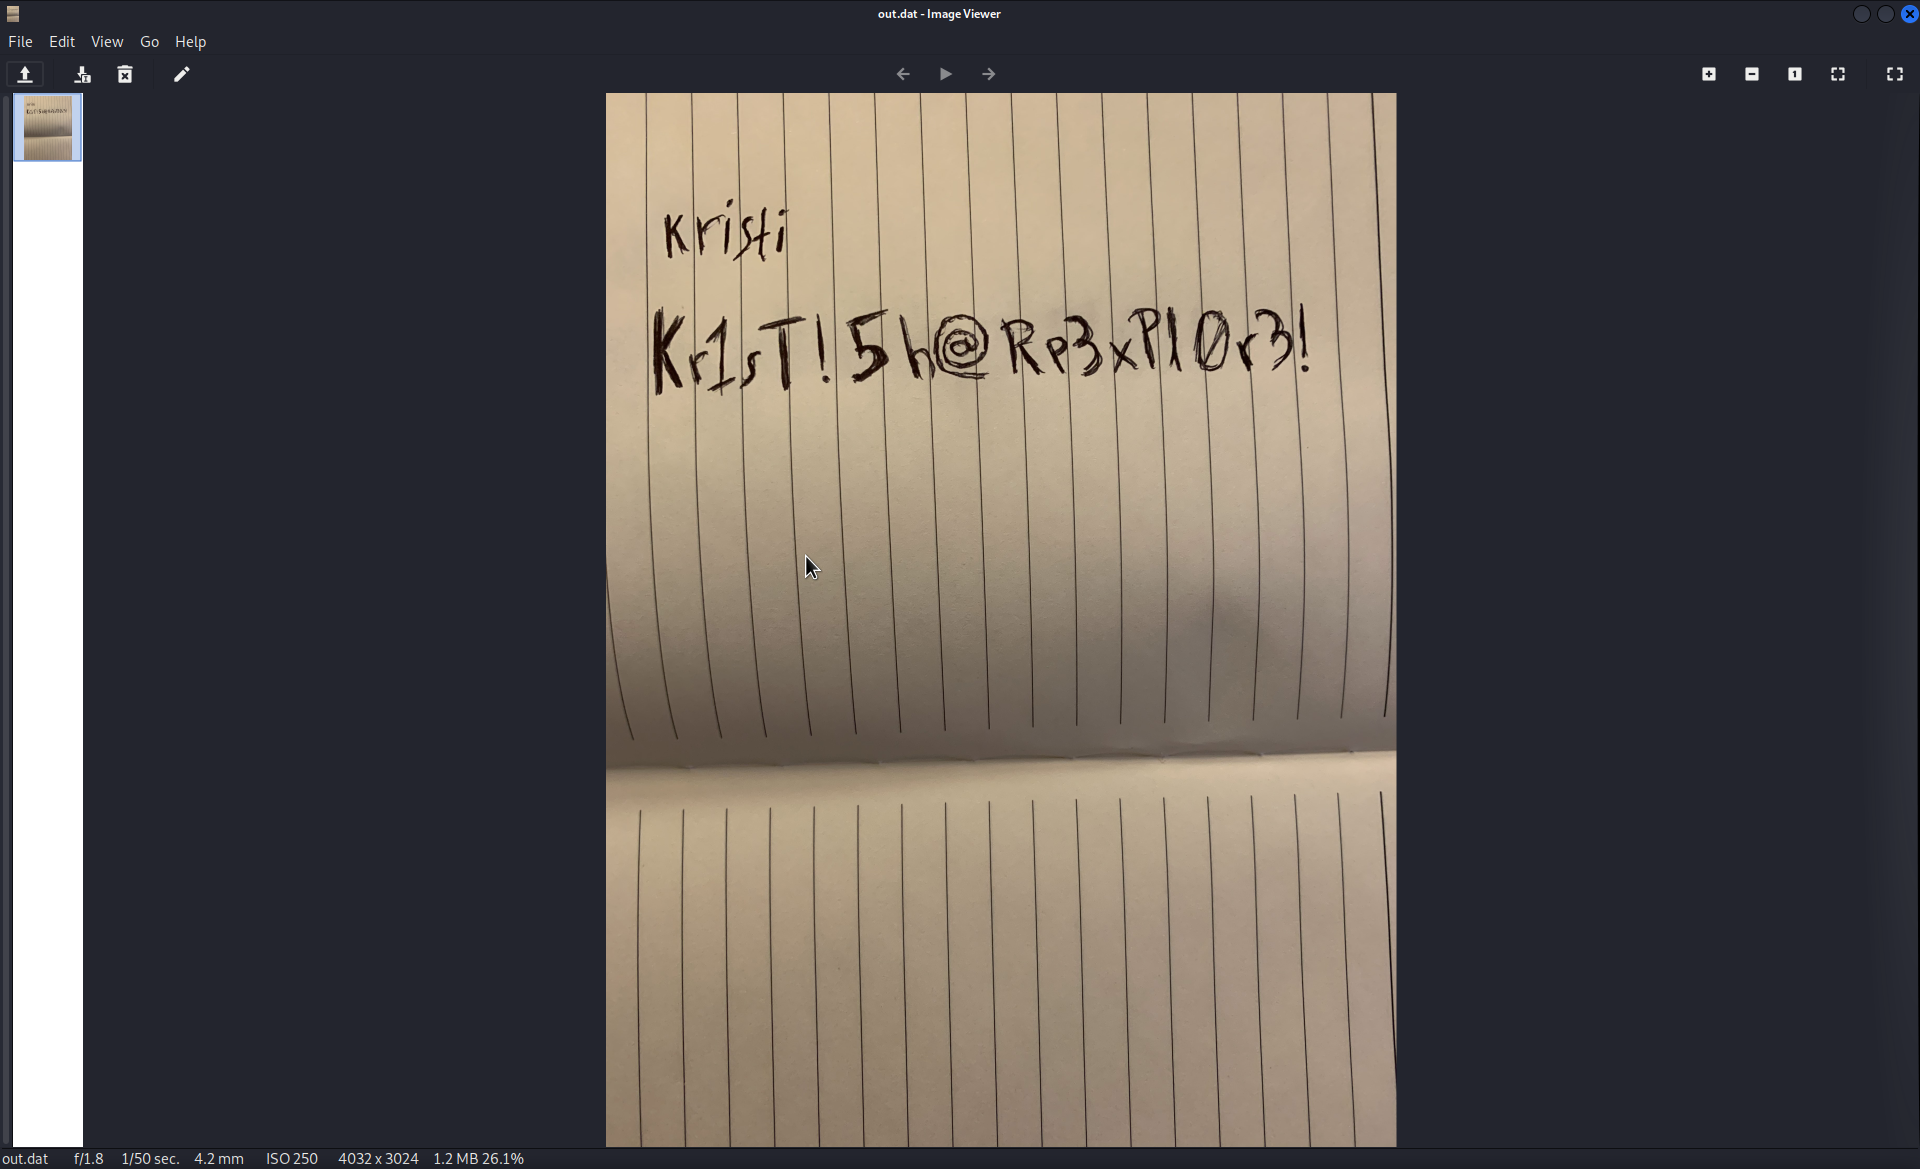 out.dat - Image Viewer
File Edit View Go Help
Kristi
Kr1sT!5h@Rp3xPl0r3!
out.dat f/1.8 1/50 sec. 4.2 mm ISO 250 4032 x 3024 1.2 MB 26.1%